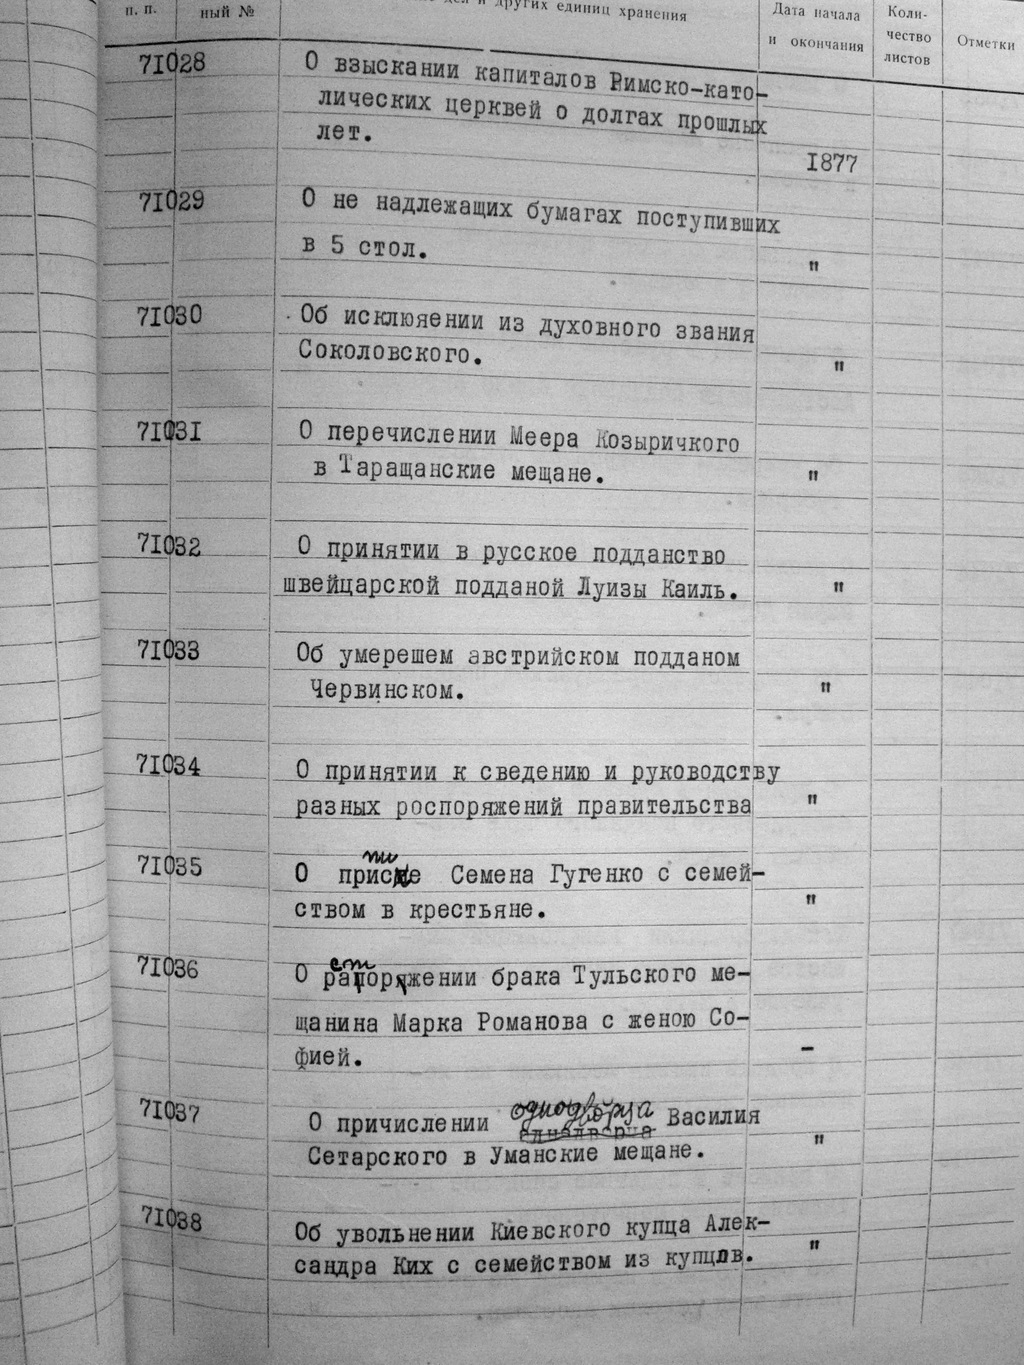 п. п.
ный №
дел и других единиц хранения
Дата начала
и окончания
Коли-
чество
листов
Отметки
71028
О взыскании капиталов Римско-като-
лических церквей о долгах прошлых
лет.
1877
71029
О не надлежащих бумагах поступивших
в 5 стол.
"
71030
Об исклюяении из духовного звания
Соколовского.
"
71031
О перечислении Меера Козыричкого
в Таращанские мещане.
"
71032
О принятии в русское подданство
швейцарской подданой Луизы Каиль.
"
71033
Об умерешем австрийском подданом
Червинском.
"
71034
О принятии к сведению и руководству
разных роспоряжений правительства
"
71035
О приписке Семена Гугенко с семей-
ством в крестьяне.
"
71036
О расторжении брака Тульского ме-
щанина Марка Романова с женою Со-
фией.
-
71037
О причислении однодворца Василия
Сетарского в Уманские мещане.
"
71038
Об увольнении Киевского купца Алек-
сандра Ких с семейством из купцов.
"